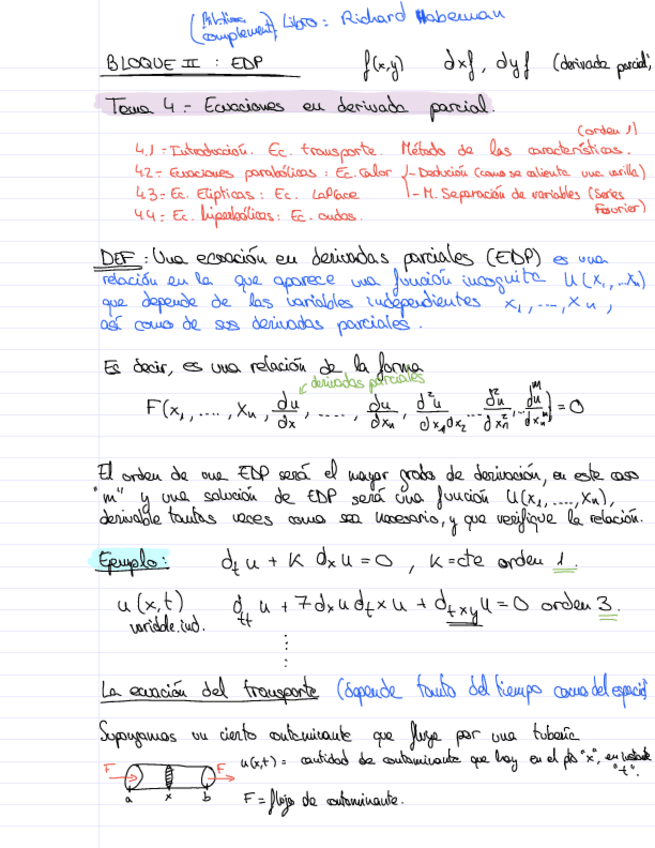 (Pilotime complement) Libro: Richard Haberman
BLOQUE II : EDP f(x,y) dxf, dyf (derivada parcial)
Tema 4.- Ecuaciones en derivada parcial.
(orden 1)
4.1.- Introducción. Ec. transporte. Método de las características.
4.2.- Ecuaciones parabólicas : Ec. Calor - Dedución (como se calienta una varilla)
4.3.- Ec. Elípticas : Ec. Laplace - M. Separación de variables (Series Fourier)
4.4.- Ec. hiperbólicas : Ec. ondas.
DEF : Una ecuación en derivadas parciales (EDP) es una
relación en la que aparece una función incognita U(x₁,...xₙ)
que depende de las variables independientes x₁,...,xₙ,
así como de sus derivadas parciales.
Es decir, es una relación de la forma
derivadas parciales
F(x₁,....,xₙ, du/dx, ....., du/dxₙ, d²u/dx₁dx₂ ... d²u/dxₙ², ... dᵐu/dxₙᵐ) = 0
El orden de una EDP será el mayor grado de derivación, en este caso
"m" y una solución de EDP será una función U(x₁,....,xₙ),
derivable tantas veces como sea necesario, y que verifique la relación.
Ejemplo: dₜu + K dₓu = 0 , K = cte orden 1.
u(x,t) dₜₜu + 7dₓu dₜₓu + dₜₓᵧu = 0 orden 3.
variable ind.
La ecuación del transporte (depende tanto del tiempo como del espacio)
Supongamos un cierto contaminante que fluye por una tubería
F F u(x,t) = cantidad de contaminante que hay en el pto "x", en instante "t".
a x b F = flujo de contaminante.